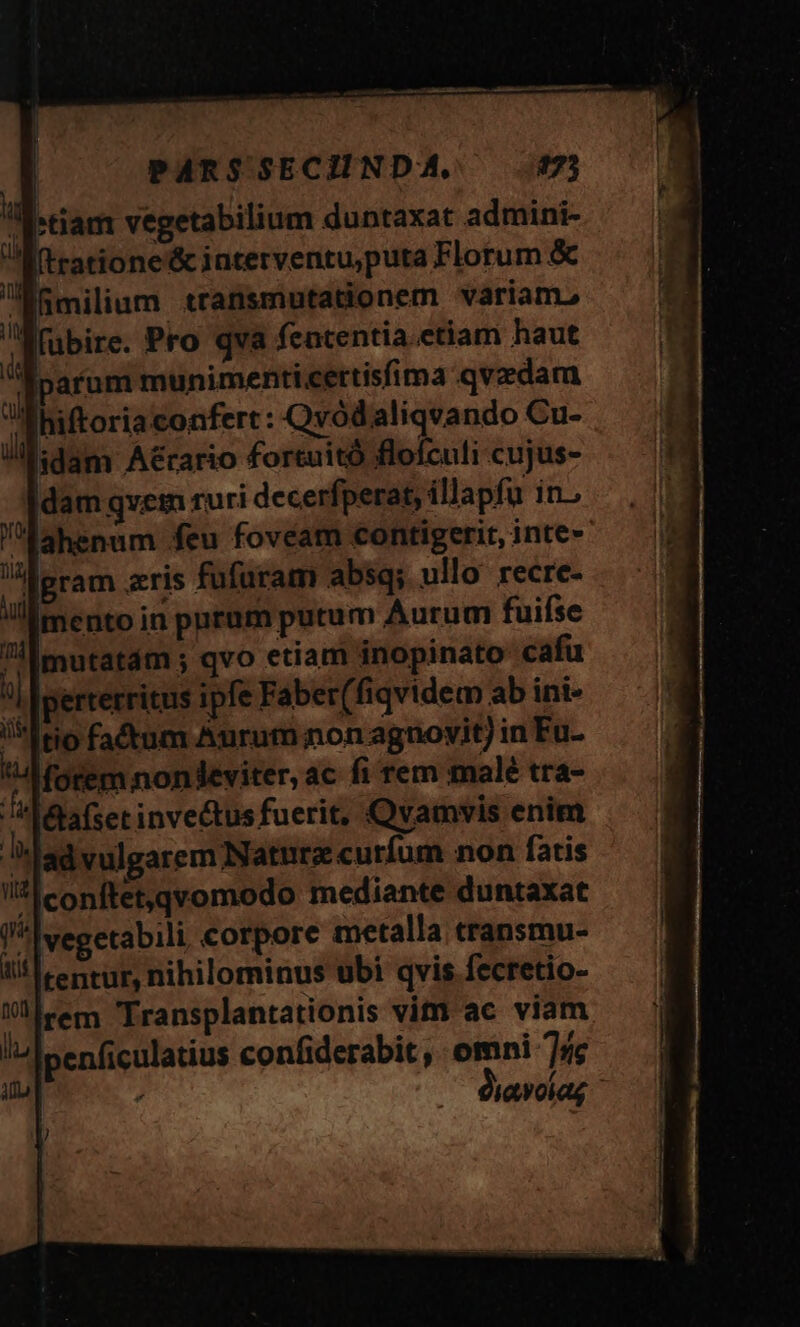 PARS SECUNDA. 173
etiam vegetabilium duntaxat admini-
ſtratione & interventu, puta Florum &
ſimilium transmutationem variam,
ſubire. Pro qva ſententia etiam haut
parum munimenti certisſima qvædam
hiſtoria confert: Qvód aliqvando Cu-
idam Aërario fortuitô floſculi cujus-
dam qvem ruri decerſperat, illapſu in
ahenum ſeu foveam contigerit, inte-
gram æris fuſuram absq; ullo recre-
mento in purum putum Aurum fuiſse
mutatam; qvo etiam inopinato caſu
perterritus ipſe Faber (ſiqvidem ab ini-
tio factum Aurum non agnovit) in Fu-
forem non leviter, ac ſi rem malè tra-
ctaſset invectus fuerit. Qvamvis enim
ad vulgarem Naturæ curſum non ſatis
conſtet, qvomodo mediante duntaxat
vegetabili corpore metalla transmu-
tentur, nihilominus ubi qvis ſecretio-
rem Transplantationis vim ac viam
penſiculatius conſiderabit, omni τῆς
διανοίας